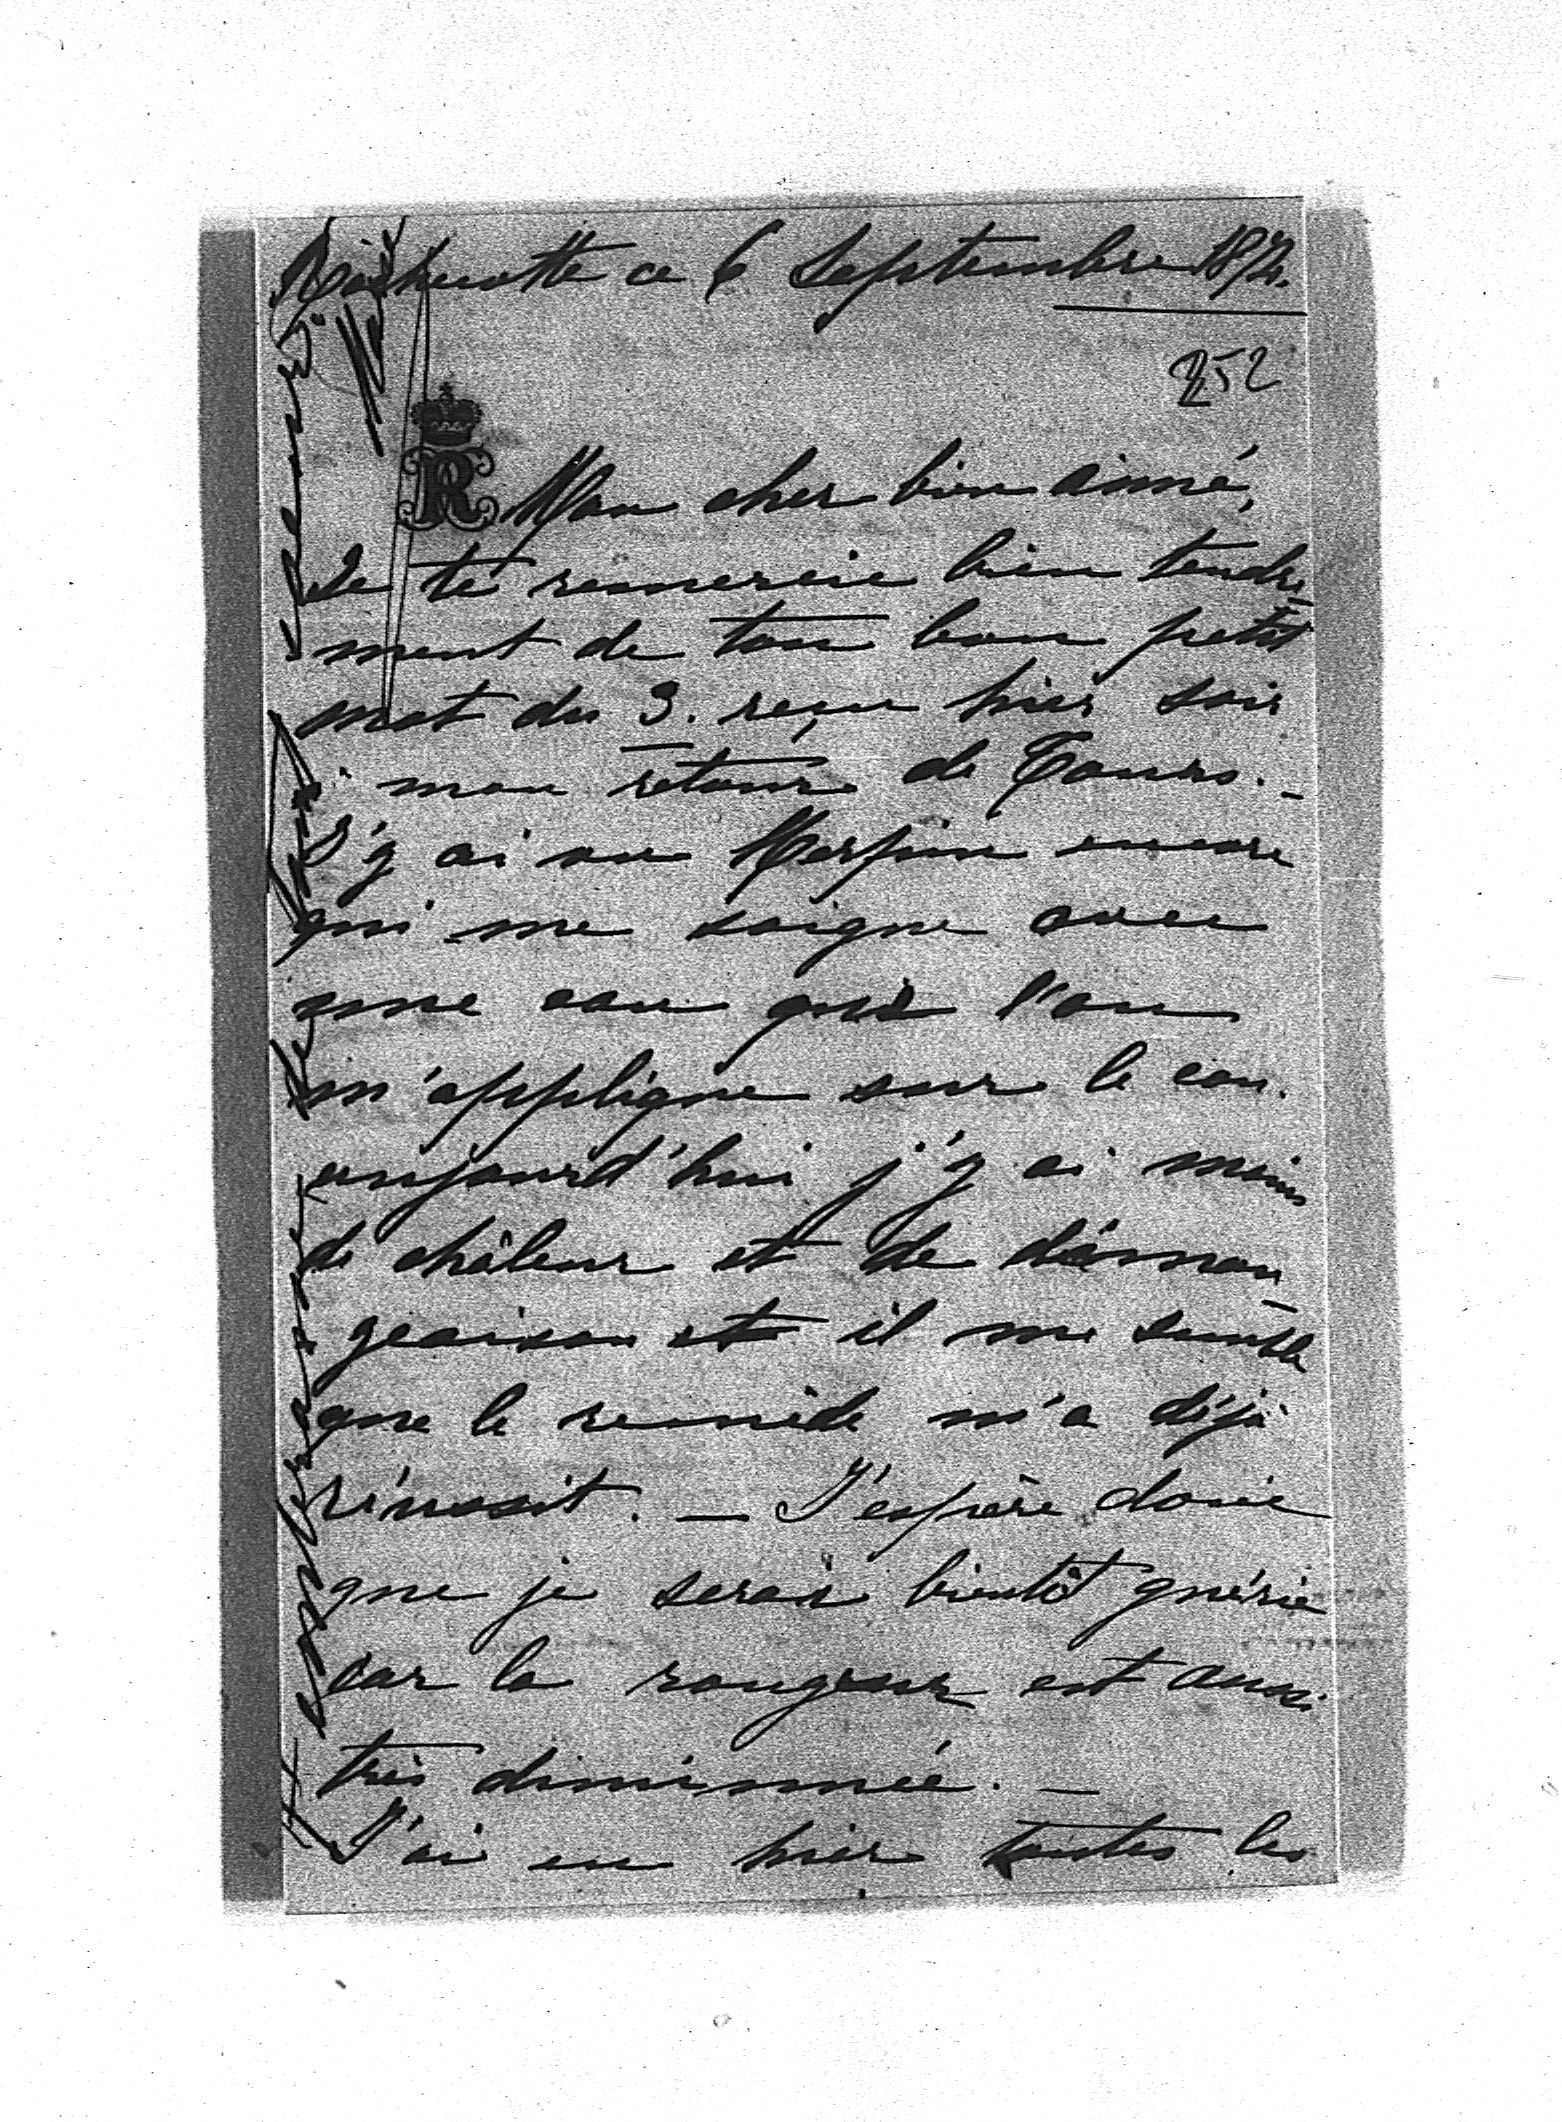 ce 6 Septembre
252
R
Mon cher bien aimé,
Je te remercie bien tendre-
ment de ton bon petit
mot du 3. reçu hier soir
à mon retour de Tours. _
J'y ai vu encore
qui me soigne avec
une eau que l'on
m'applique sur le cou.
aujourd'hui j'y ai moins
de châleur et de déman-
geaison et il me semble
que le remède m'a déjà
réussit. _ J'espère donc
que je serais bientôt guérie
car la rougeur est aussi
très diminuée. _
J'ai eu hier toutes les